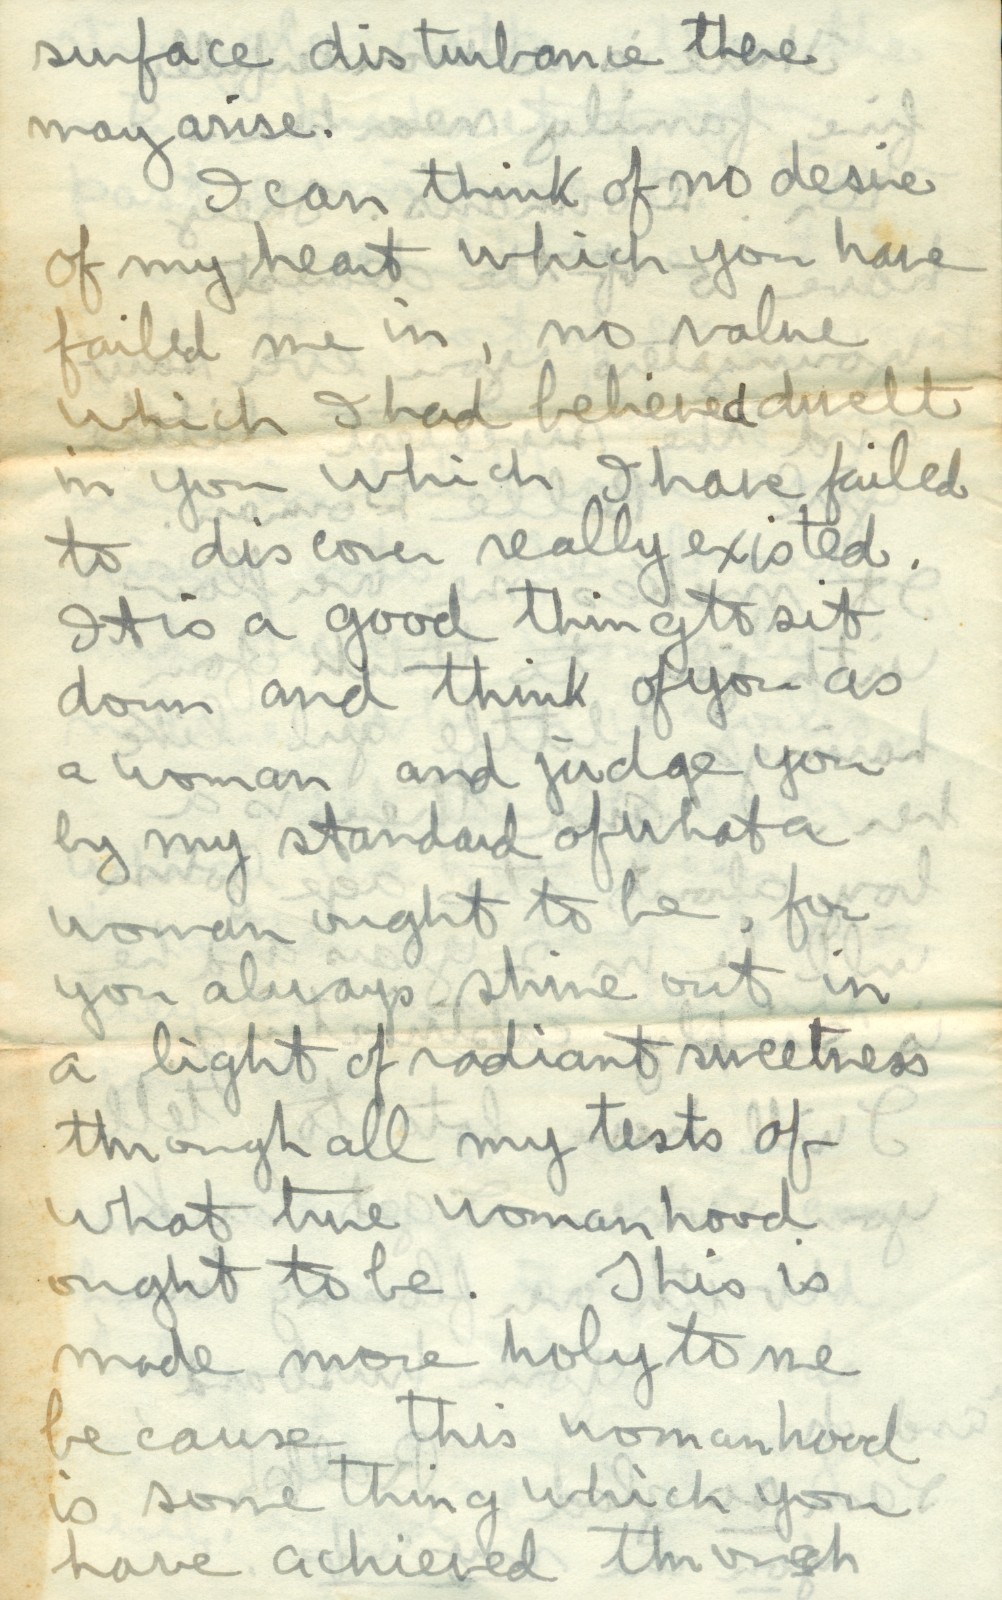 surface disturbance there
may arise.
I can think of no desire
of my heart which you have
failed me in, no value
which I had believed dwelt
in you which I have failed
to discover really existed.
It is a good thing to sit
down and think of you as
a woman and judge you
by my standard of what a
woman ought to be, for
you always shine out in
a light of radiant sweetness
through all my tests of
what true womanhood
ought to be. This is
made more holy to me
because this womanhood
is something which you
have achieved through